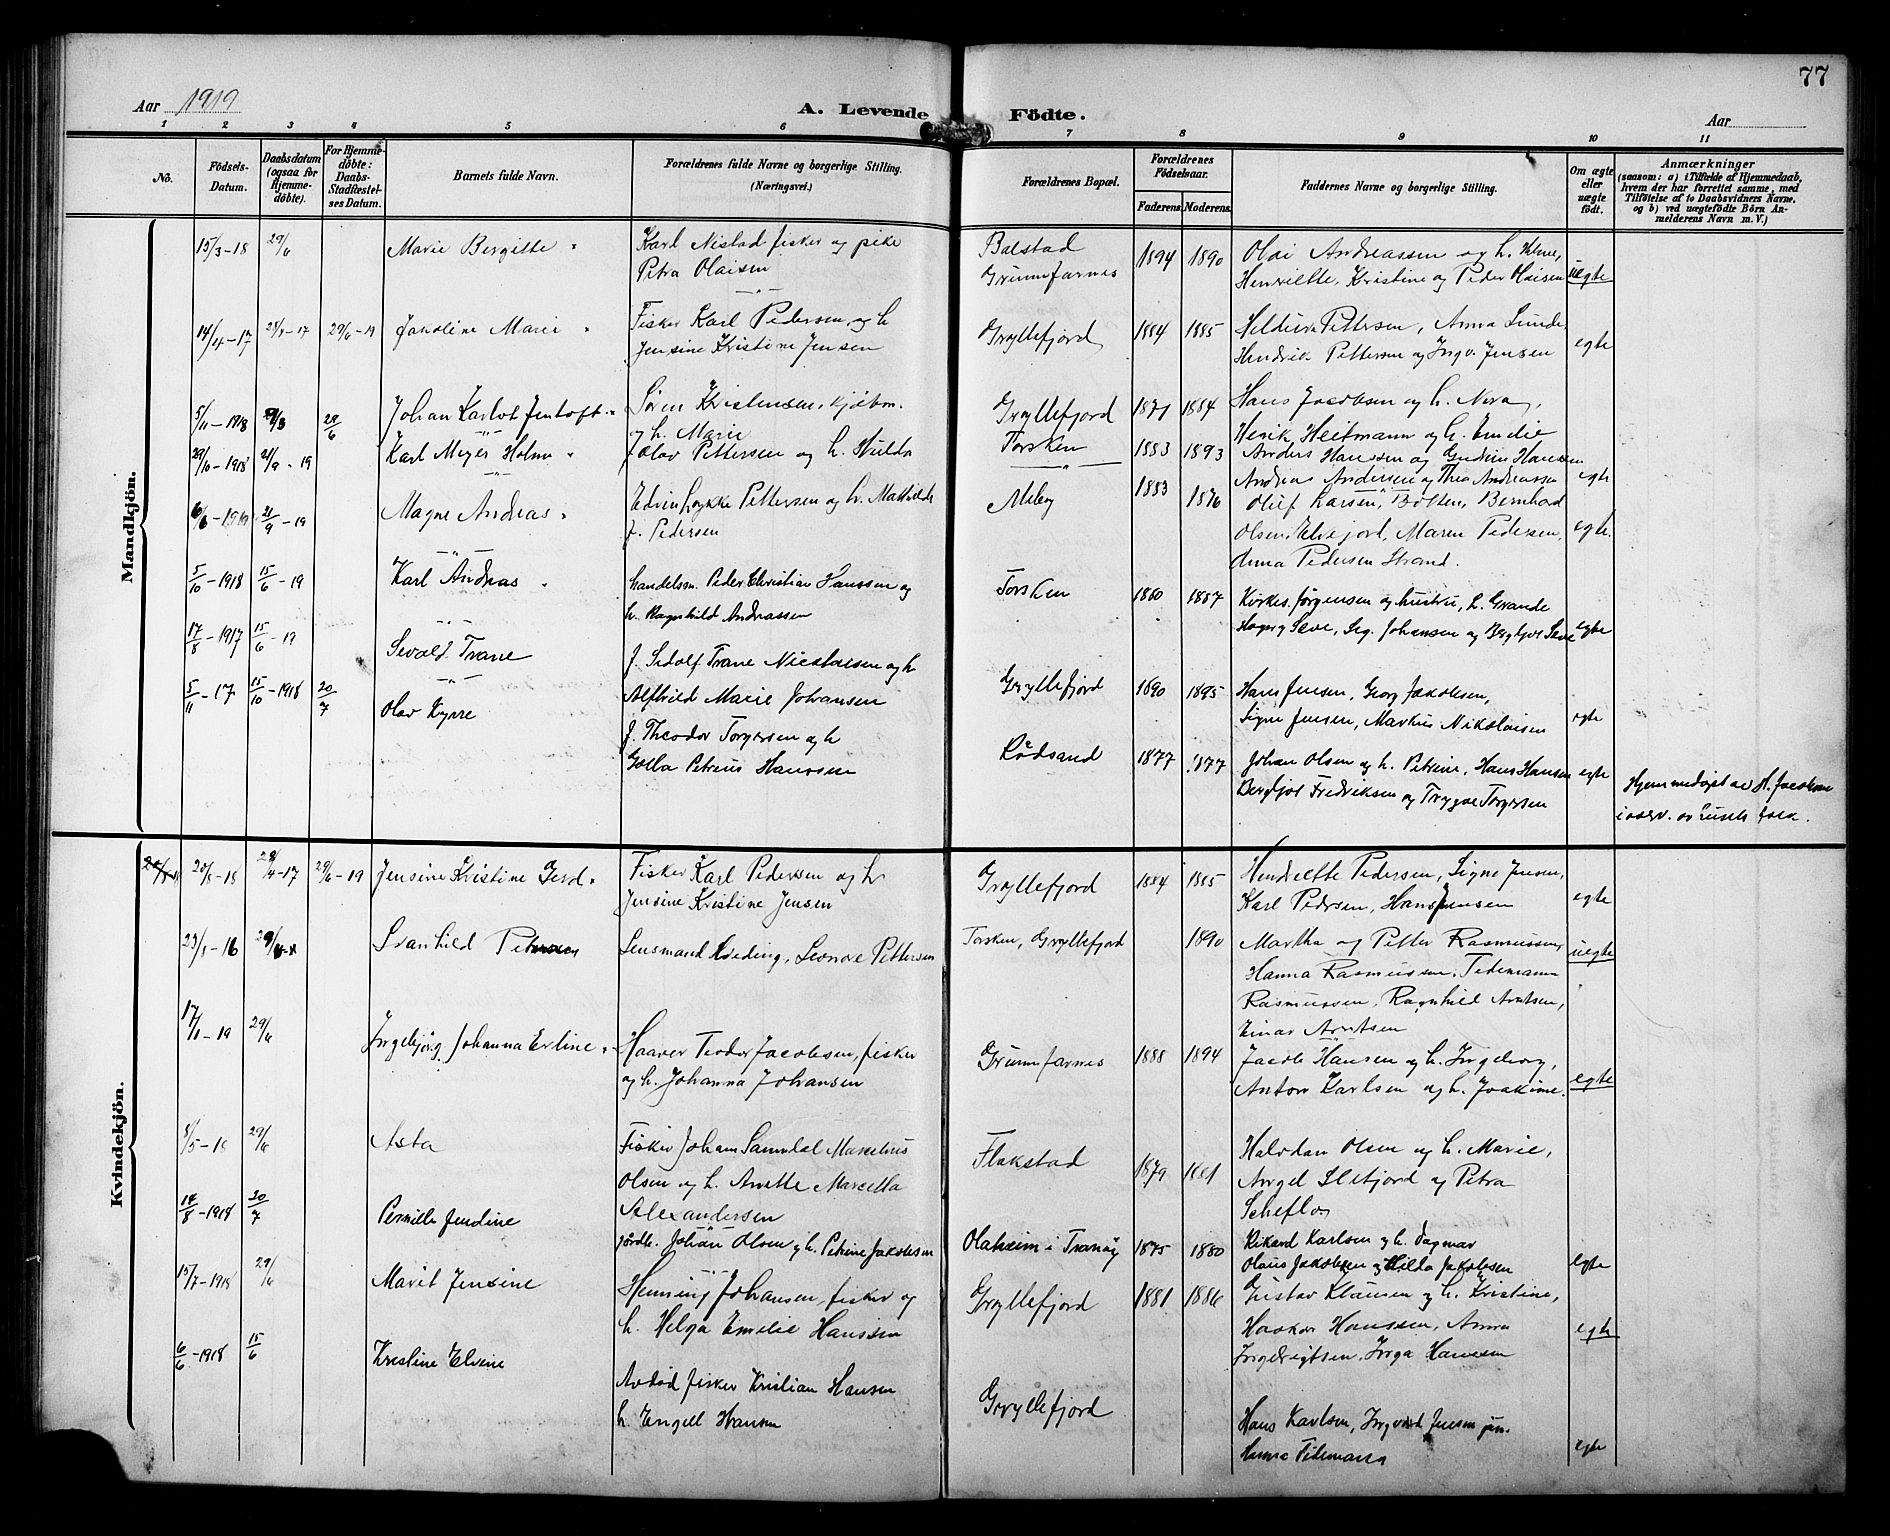 77
Aar 1919
A. Levende Födte.
Aar
1 2 3 4 5 6 7 8 9 10 11
No.
Födsels-Datum.
Daabsdatum (ogsaa for Hjemme-döbte).
For Hjemme-döbte: Daabs-Stadfæstel-ses Datum.
Barnets fulde Navn.
Forældrenes fulde Navne og borgerlige Stilling.
(Næringsvei.)
Forældrenes Bopæl.
Forældrenes Födselsaar.
Faderens. Moderens.
Faddernes Navne og borgerlige Stilling.
Om ægte eller uægte födt.
Anmærkninger
(saasom: a) i Tilfælde af Hjemmedaab, hvem der har forrettet samme, med Tilföielse af to Daabsvidners Navne, og b) ved uægtefödte Börn An-melderens Navn m. V.)
Mandkjön.
15/3-18 29/6 Marie Bergitte Karl Nistad fisker og pike Balstad 1894 1890 Olai Andreassen og h.
Petra Olaisen Grunnfarnes Henriette, Kristine og Peder Olaisen uegte
14/4-17 28/4-17 29/6-19 Jakoline Marie Fisker Karl Pedersen og h Gryllefjord 1884 1885 Pettersen, Anna
Jensine Kristine Jensen Hendrik Pettersen og Ingv. Jensen egte
5/11-1918 29/6 Johan Karlot Jentoft Sören Kristensen, kjöbm. Gryllefjord 1871 1884 Hans Jacobsen og h. Nora,
og h. Marie Henrik Heitmann og h. Emelie
29/10-1918 21/9-19 Karl Meyer Holm Olav Pettersen og h. Hulda Torsken 1883 1893 Anders Hanssen og Gudrun Hansen
Andreas Andersen og Thea Andreassen egte
6/6-1919 21/9-19 Magne Andreas Edvin Lykke Pettersen og h. Mathilde Medby 1883 1876 Oluf Larsen, Botten, Bernhard
f. Pedersen Olsen, Elvejord, Maren Pedersen, egte.
Anna Pedersen Strand.
5/10-1918 15/6-19 Karl Andreas handelsm. Peder Christian Hanssen og Torsken 1860 1887 Kirkes. Jørgensen og hustru, L. Grande
h. Ragnhild Andreassen Johansen og Bergljot egte
17/8-1917 15/6-19 Sevald Trane f. Sedolf Trane Nicolaisen og h Gryllefjord 1890 1895 Hans Jensen, Georg Jakobsen,
Alfhild Marie Johansen Signe Jensen, Markus Nikolaisen egte
5/11-17 15/10-1918 20/7 Olav Kyrre f. Theodor Torgersen og h Rödsand 1877 1877 Johan Olsen og h. Petrine, Hans Hansen egte
Golla Petrine Hanssen Bergljot Fredriksen og Trygve Torgersen
Hjemmedøpt av H. Jacobsen
i overv. av husets folk.
Kvindekjön.
20/8-18 28/4-17 29/6-19 Jensine Kristine Gerd Fisker Karl Pedersen og h Gryllefjord 1884 1885 Henriette Pedersen, Signe Jensen,
Jensine Kristine Jensen Karl Pedersen, Hans Jensen egte
23/1-16 29/6 Svanhild Lensmand Kveding, Leonore Pettersen Torsken, Gryllefjord 1890 Martha og Petter Rasmussen, uegte
Hanna Rasmussen, Tidemann
Rasmussen, Ragnhild Arntsen,
Einar Arntsen
17/1-19 29/6 Ingebjörg Johanna Erline Haaver Teodor Jacobsen, fisker Grunnfarnes 1888 1894 Jacob Hansen og h. Ingeborg,
og h. Johanna Johansen Anton Karlsen og h. Joakime. egte
8/5-18 29/6 Asta Fisker Johan Samndal Marselius Flakstad 1879 1881 Halvdan Olsen og h. Marie,
Olsen og h. Anette Marcella Angel Slefjord og Petra
Alexandersen Scheflo
14/8-1918 20/7 Pernille Jendine jordbr. Johan Olsen og h. Petrine Jakobsen Olaheim i Tranöy 1875 1880 Rikard Karlsen og h. Dagmar
Olaus Jakobsen og Hilda Jakobsen egte
15/7-1918 29/6 Marit Jensine Henning Johansen, fisker og Gryllefjord 1881 1886 Gustav Klausen og h. Kristine,
h. Helga Emelie Hanssen Haakon Hanssen, Anna egte
Ingebrigtsen, Inga Hansen
6/6-1918 15/6 Kristine Elvine Avdöd fisker Kristian Hansen Gryllefjord Hans Karlsen, Ingvard Jensen jun.
h. Engell Hansen Hanna Tidemann egte